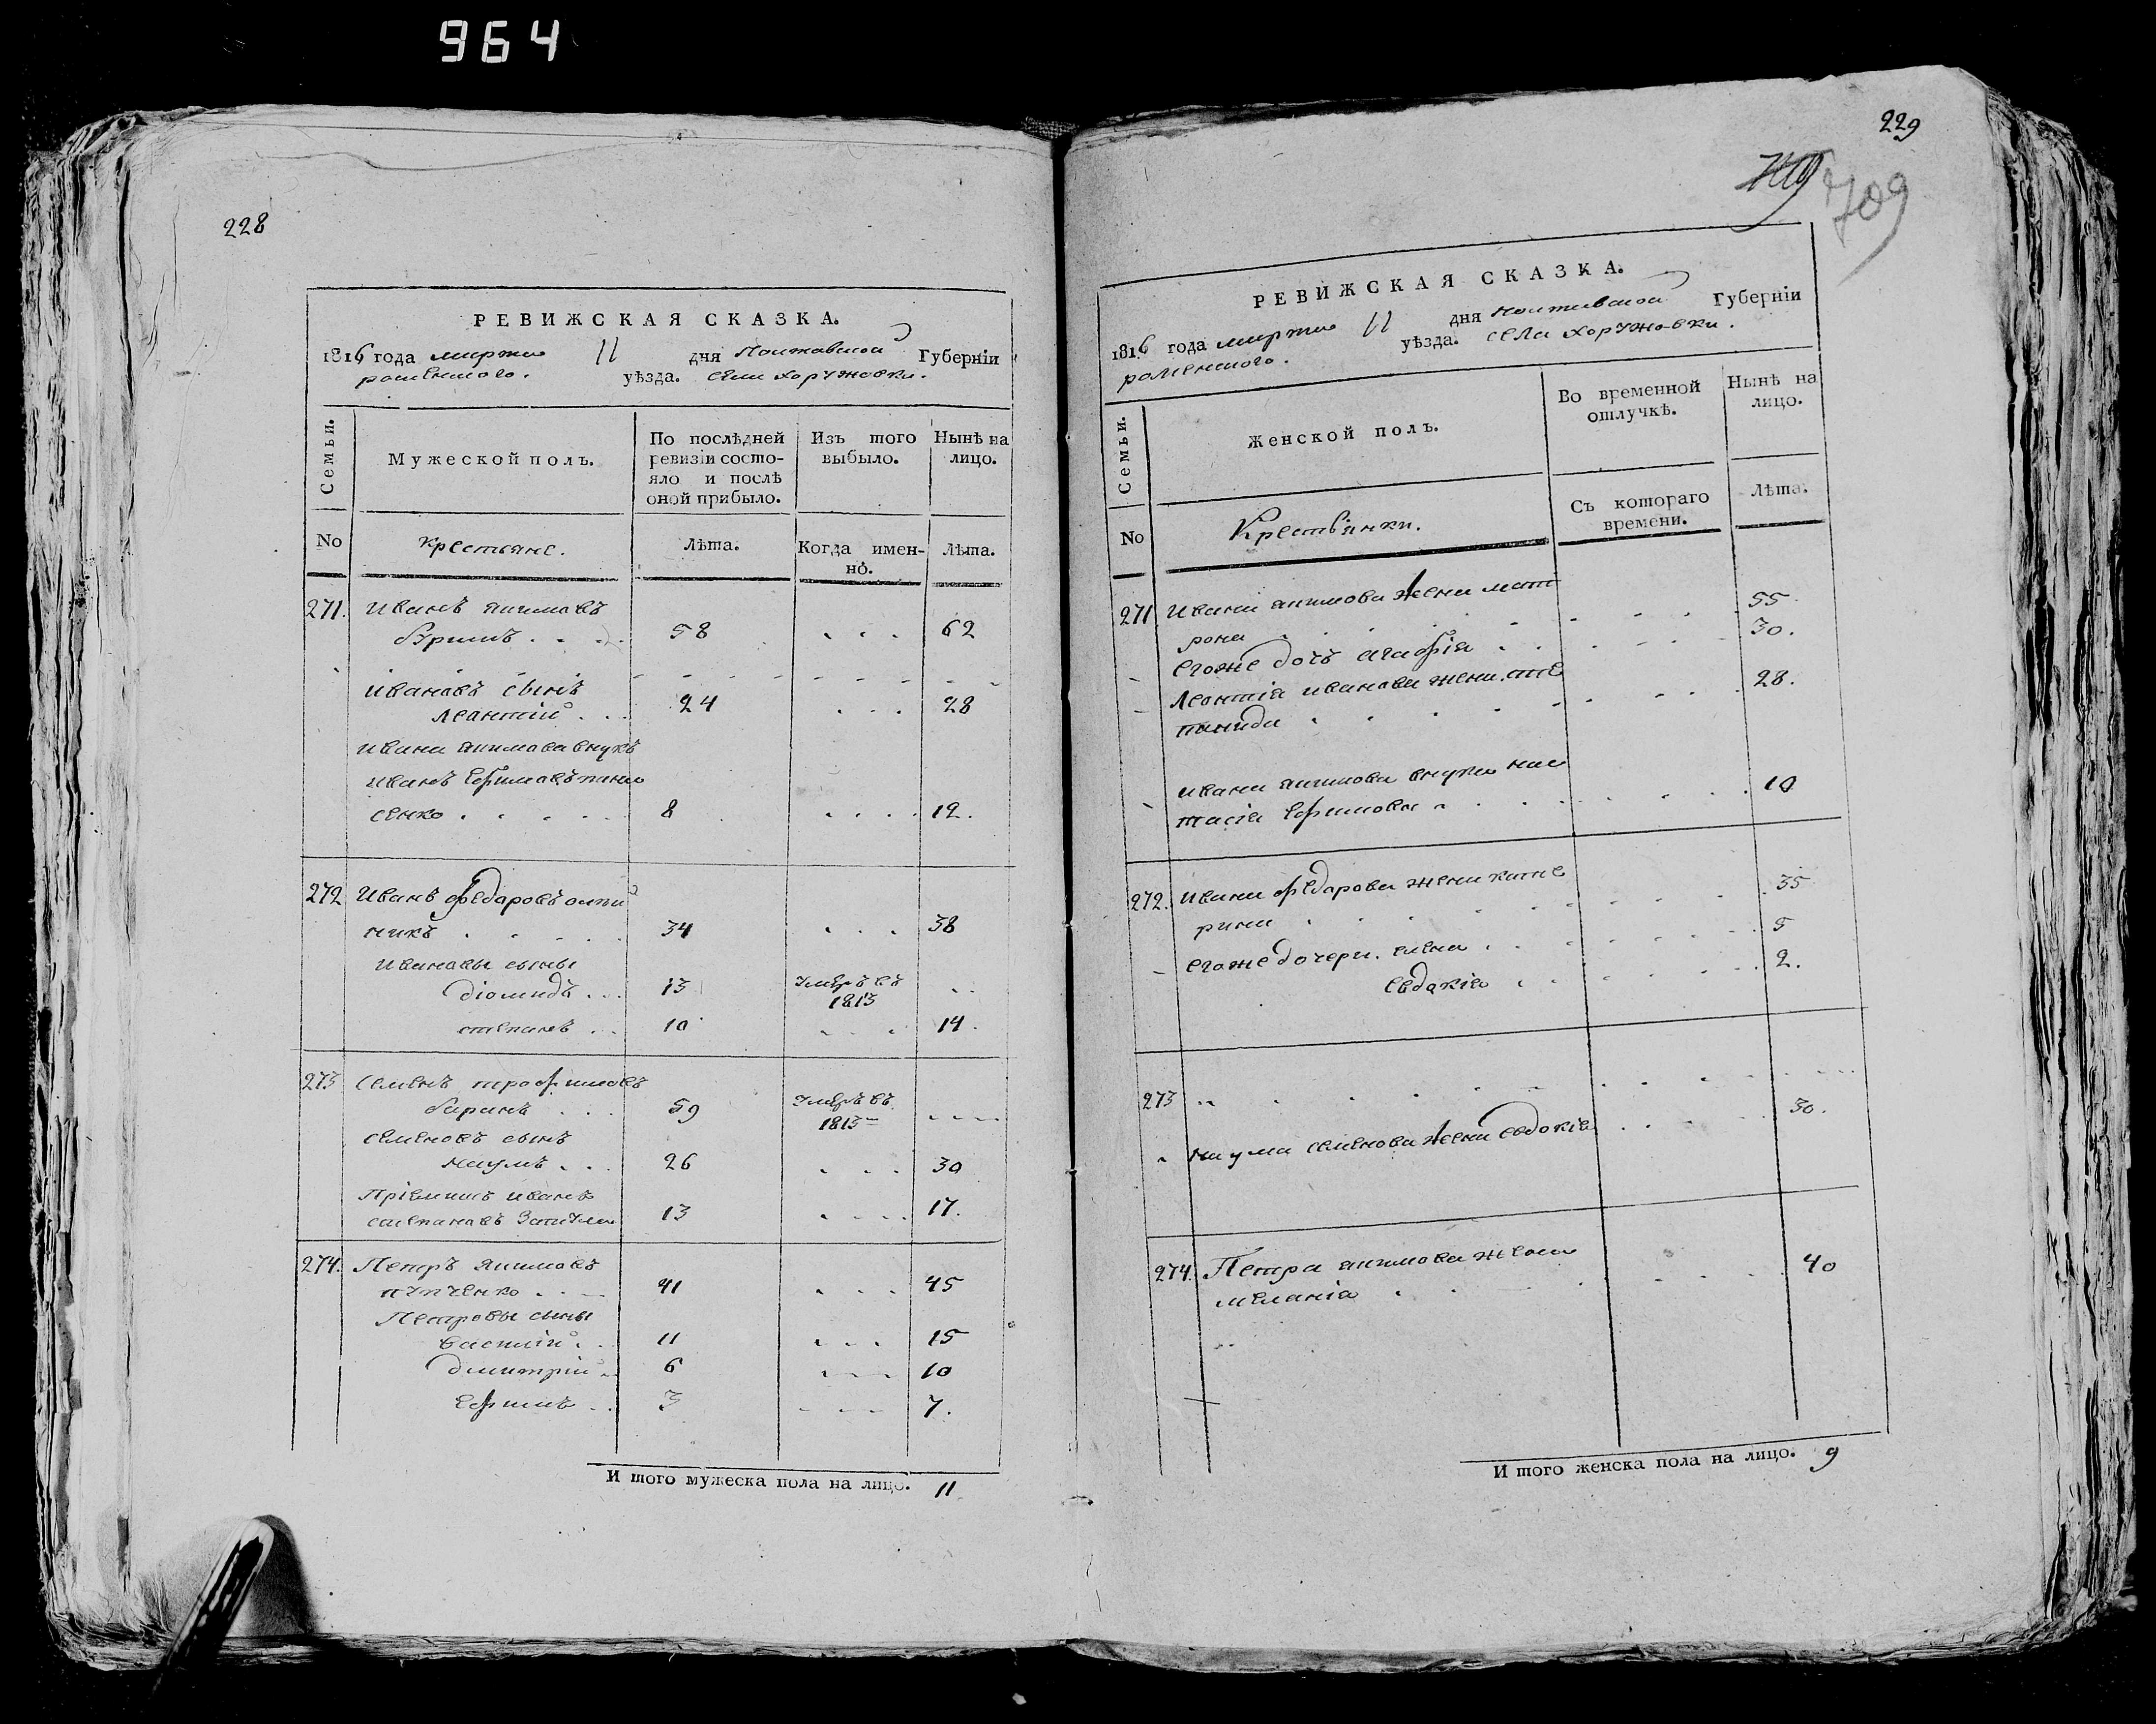 964
228
РЕВИЖСКАЯ СКАЗКА.
1816 года марта 11 дня Полтавской Губерніи
роменского. уѣзда. села хоружовки.
Семьи.
Мужеской полъ.
По послѣдней
ревизіи состо-
яло и послѣ
оной прибыло.
Изъ того
выбыло.
Нынѣ на
лицо.
No
Крестьяне.
Лѣта.
Когда имен-
но.
Лѣта.
271. Иванъ якимовъ
58 62
Ивановъ сынъ
леонтій 24 28
ивана якимова внукъ
иванъ Ефимовъ
сенко 8 12.
272 Иванъ федоровъ
никъ 34 38
Ивановы сыны
діомидъ 13 умеръ въ
1813
степанъ 10 14.
273 Семенъ трофимовъ
баранъ 59 умеръ въ
1813
семеновъ сынъ
наумъ 26 30
Пріемышъ иванъ
степановъ 13 17.
274. Петръ якимовъ
41 45
Петровы сыны
василій 11 15
дмитрій 6 10
Ефимъ 3 7.
И того мужеска пола на лицо. 11
229
709
РЕВИЖСКАЯ СКАЗКА.
1816 года марта 11 дня полтавской Губерніи
роменского. уѣзда. села хоружовки.
Семьи.
Женской полъ.
Во временной
отлучкѣ.
Нынѣ на
лицо.
No
Крестьянки.
Съ котораго
времени.
Лѣта.
271 Ивана якимова жена мат
рона 55
егоже дочь агафія 30.
Леонтія иванова жена сте
панида 28.
ивана якимова внука нас
тасія Ефимова 10
272. Ивана федорова жена кате
рина 35
егоже дочери. елена 5
Евдокія 2.
273
наума семенова жена Евдокія 30.
274. Петра якимова жена
меланія 40
И того женска пола на лицо. 9